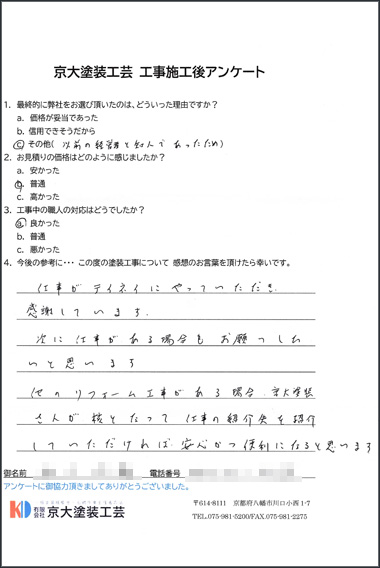 京大塗装工芸 工事施工後アンケート
1. 最終的に弊社をお選び頂いたのは、どういった理由ですか？
a. 価格が妥当であった
b. 信用できそうだから
c. その他( 以前の経営者と知人であったため)
2. お見積りの価格はどのように感じましたか？
a. 安かった
b. 普通
c. 高かった
3. 工事中の職人の対応はどうでしたか？
a. 良かった
b. 普通
c. 悪かった
4. 今後の参考に・・・ この度の塗装工事について 感想のお言葉を頂けたら幸いです。
仕事がテイネイにやっていただき
感謝しています.
次に仕事がある場合もお願いした
いと思います
他のリフォーム工事がある場合.京大塗装
さんが核となって仕事の紹介先を紹介
していただければ.安心かつ便利になると思います
御名前 電話番号
アンケートに御協力頂きましてありがとうございました。
KD 有限会社 京大塗装工芸
〒614-8111 京都府八幡市川口小西 1-7
TEL.075-981-5200/FAX.075-981-2275